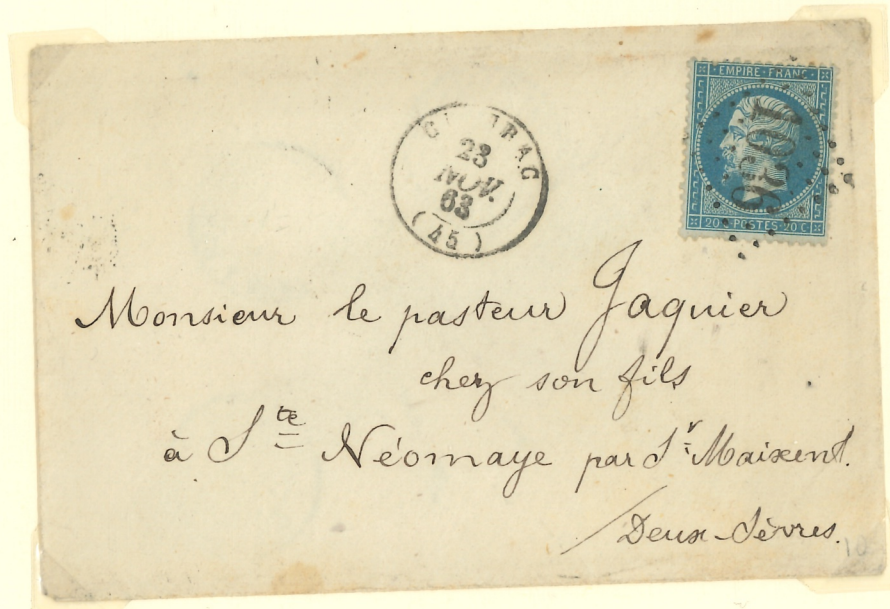 EMPIRE · FRANC
1036
20 C POSTES 20 C
23
NOV.
63
(45)
Monsieur le pasteur Jaquier
chez son fils
à Ste Néomaye par St Maixent.
Deux-Sèvres.